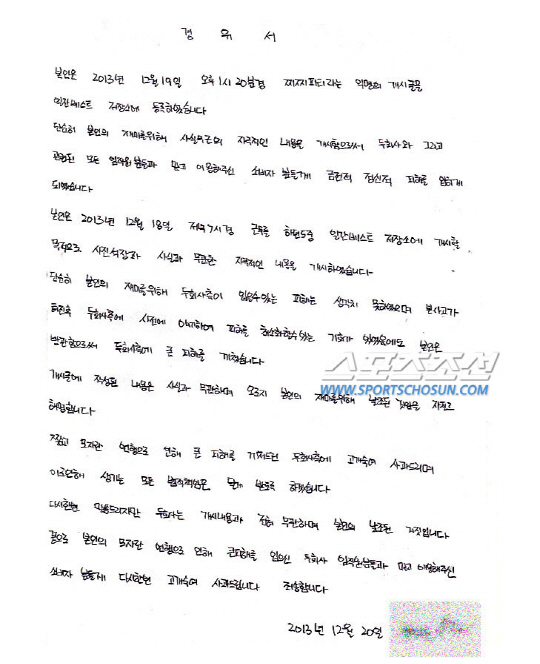 경 위 서
본인은 2013년 12월 19일 오후 1시 20분경 찌찌파티라는 익명의 게시글을
일간베스트 저장소에 등록하였습니다
단순히 본인의 재미를위해 사실무근의 자극적인 내용을 게시함으로서 두회사와 그리고
관련된 모든 임직원분들과 믿고 이용해주신 소비자 분들게 금전적 정신적 피해를 입히게
되었습니다
본인은 2013년 12월 18일 저녁7시경 근무를 하던도중 일간베스트 저장소에 게시할
목적으로 사진석장과 사실과 무관한 자극적인 내용을 게시하였습니다
단순히 본인의 재미를위해 두회사측이 입을수있는 피해는 생각치 못하였으며 본사고가
터진후 두회사측에 사전에 이야기하여 피해를 최소화할수있는 기회가 있었음에도 본인은
방관함으로써 두회사측에 큰 피해를 끼쳤습니다
스포츠조선
WWW.SPORTSCHOSUN.COM
게시물에 작성된 내용은 사실과 무관하며 오로지 본인의 재미를위해 날조된 것임을 자필로
해명합니다
짧고 모자란 언행으로 인해 큰 피해를 끼쳐드린 두회사측에 고개숙여 사과드리며
이로인해 생기는 모든 법적책임은 달게 받도록 하겠습니다
다시한번 말씀드리지만 두회사는 게시내용과 전혀 무관하며 본인의 날조된 거짓입니다
끝으로 본인의 모자란 언행으로 인해 큰피해를 입으신 두회사 임직원분들과 믿고 이용해주신
소비자 분들게 다시한번 고개숙여 사과드립니다 죄송합니다
2013년 12월 20일